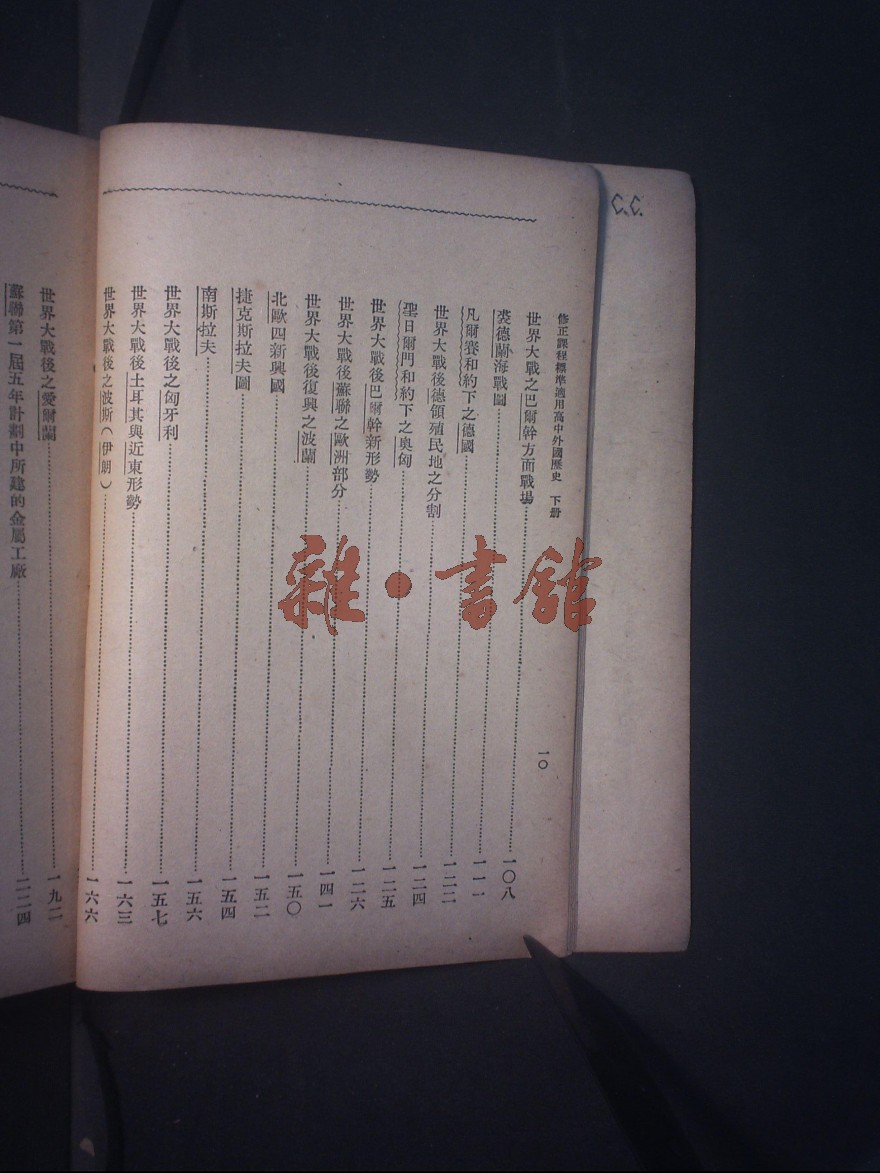 C.C.
修正課程標準適用高中外國歷史 下册
一〇
世界大戰之巴爾幹方面戰場 一〇八
裘德蘭海戰圖 一一一
凡爾賽和約下之德國 一二二
世界大戰後德領殖民地之分割 一二四
聖日爾門和約下之奥匈 一二五
世界大戰後巴爾幹新形勢 一二六
世界大戰後蘇聯之歐洲部分 一四一
世界大戰後復興之波蘭 一五〇
北歐四新興國 一五二
捷克斯拉夫圖 一五四
南斯拉夫 一五六
世界大戰後之匈牙利 一五七
世界大戰後土耳其與近東形勢 一六三
世界大戰後之波斯(伊朗) 一六六
世界大戰後之愛爾蘭 一九二
蘇聯第一屆五年計劃中所建的金屬工廠 二二四
雜·書館